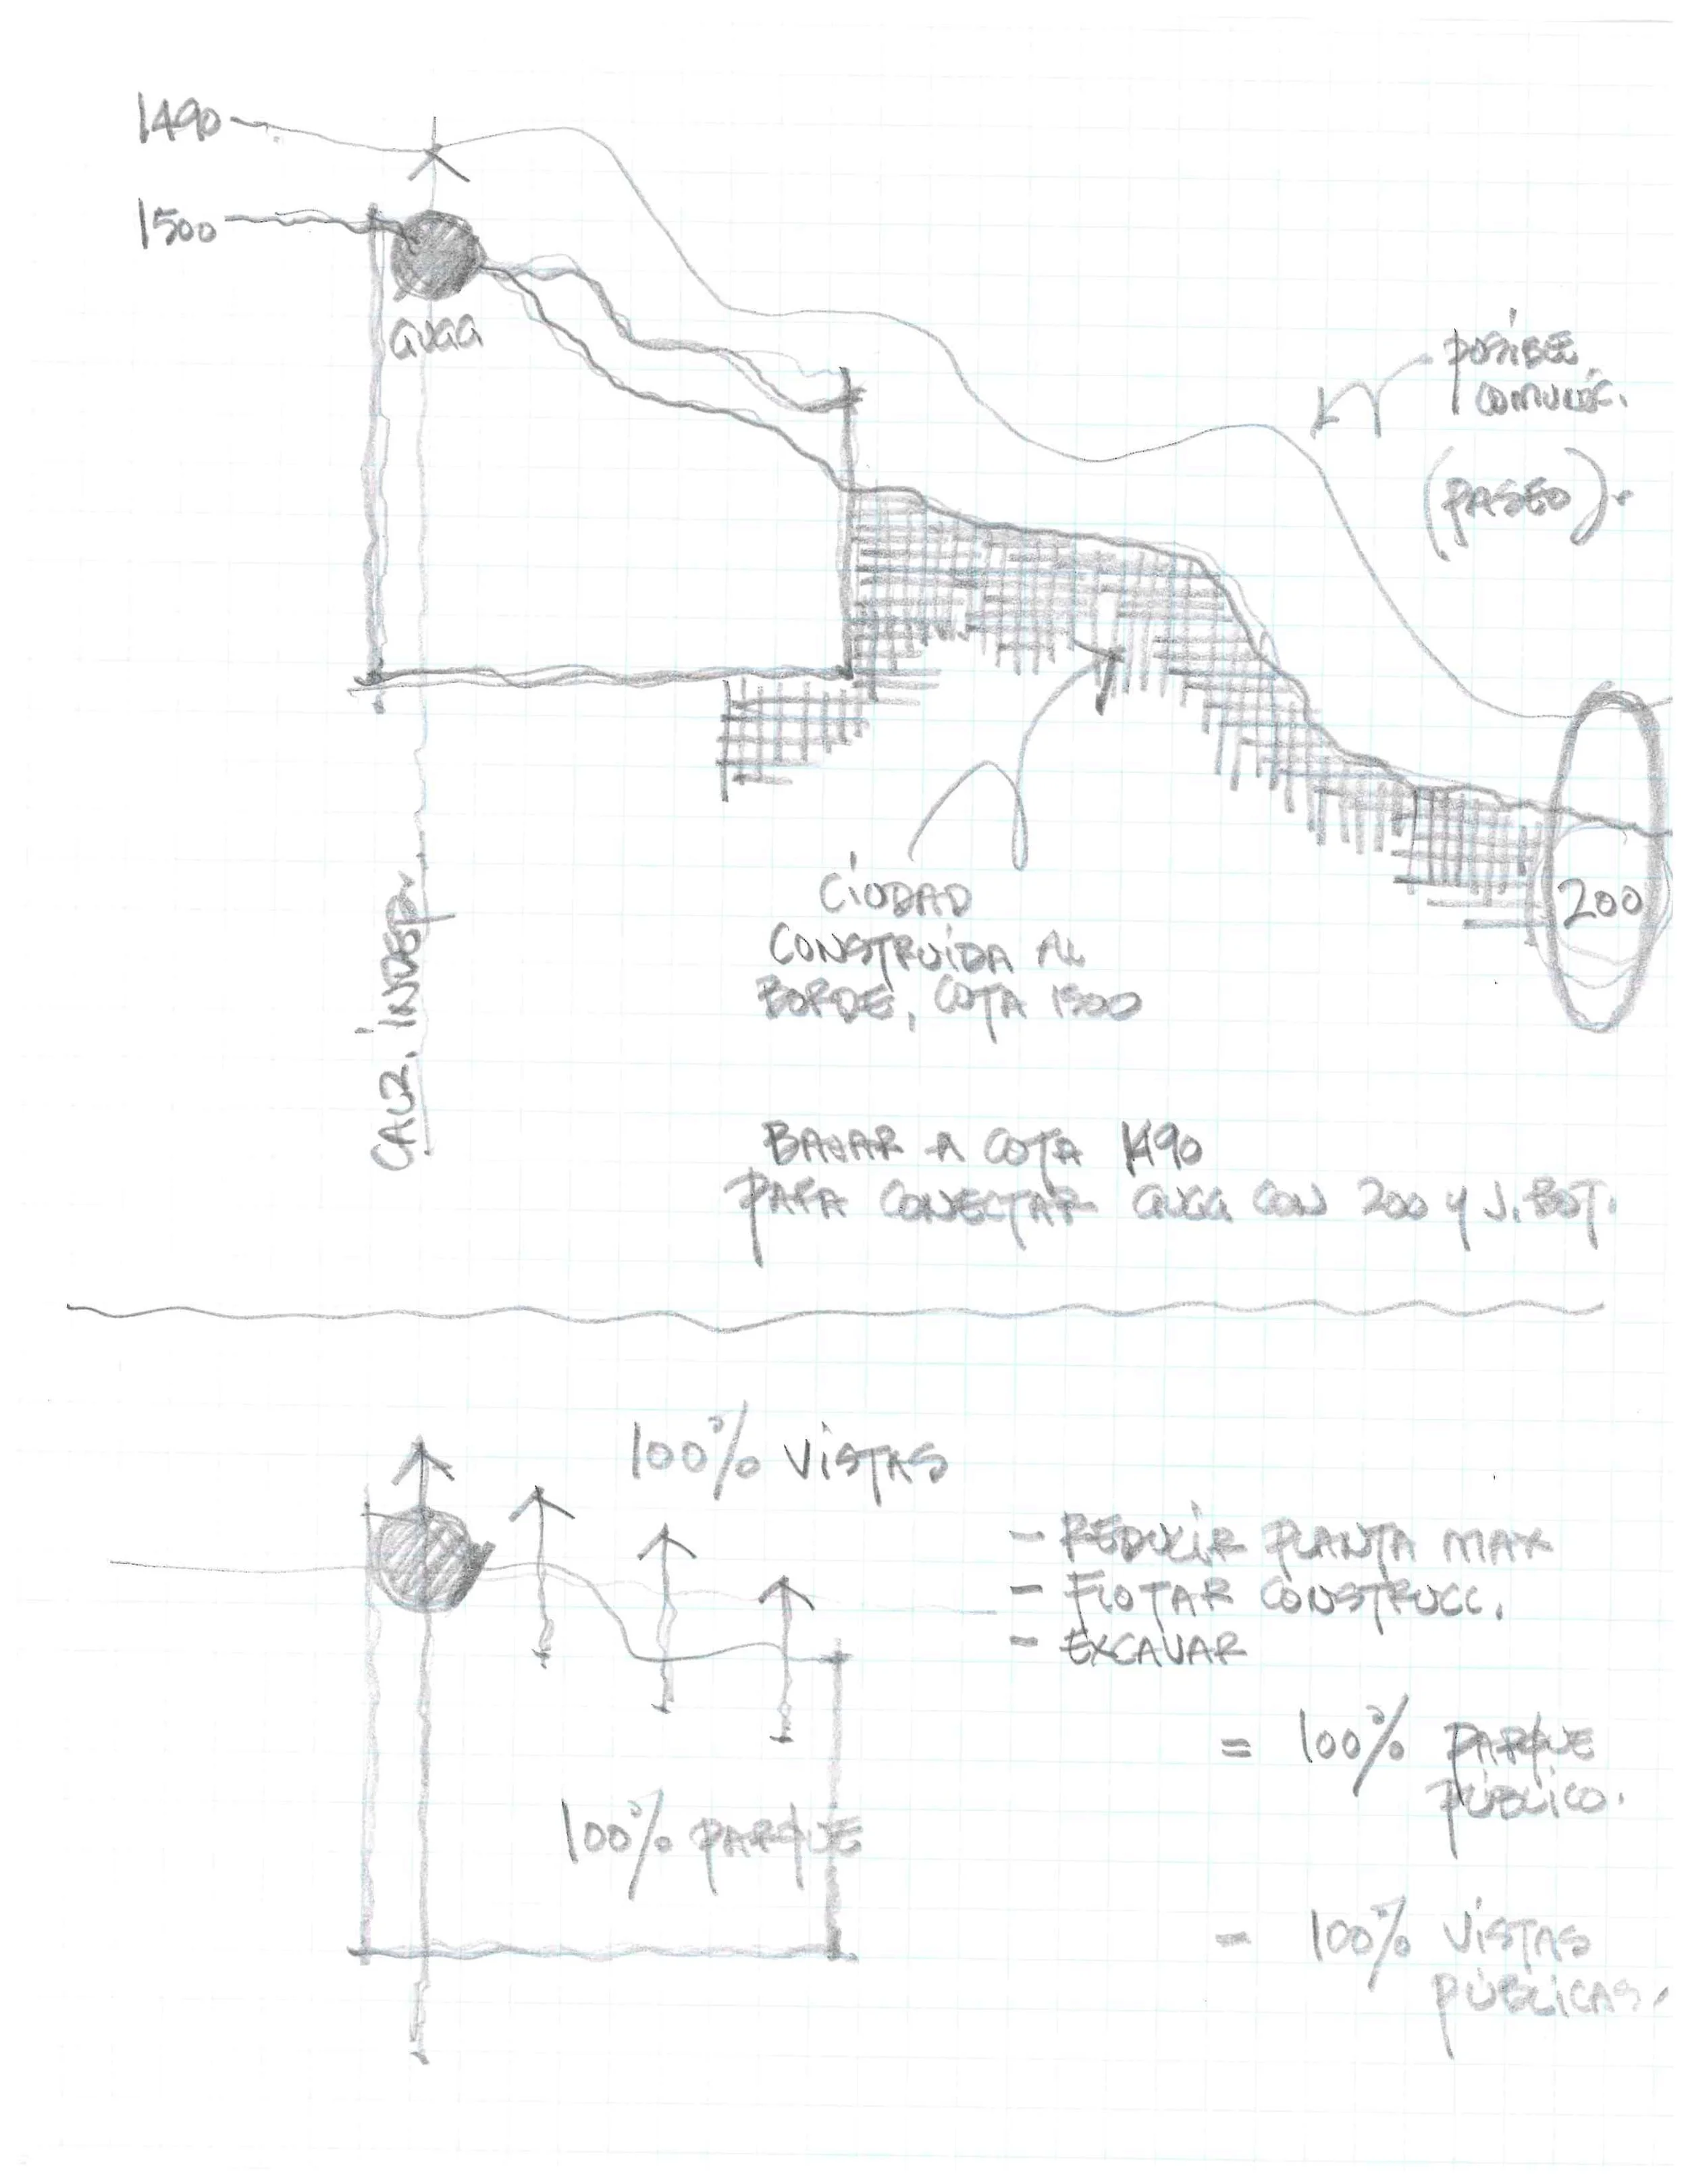 1490
1500
GUGG
POSIBLE
COMUNIC.
(PASEO).
200
CIUDAD
CONSTRUIDA AL
BORDE, COTA 1500
CALZ. INDEP.
BAJAR A COTA 1490
PARA CONECTAR GUGG CON ZOO Y J. BOT.
100% VISTAS
- REDUCIR PLANTA MAX
- FLOTAR CONSTRUCC.
- EXCAVAR
= 100% PARQUE
PÚBLICO.
100% PARQUE
- 100% VISTAS
PÚBLICAS.